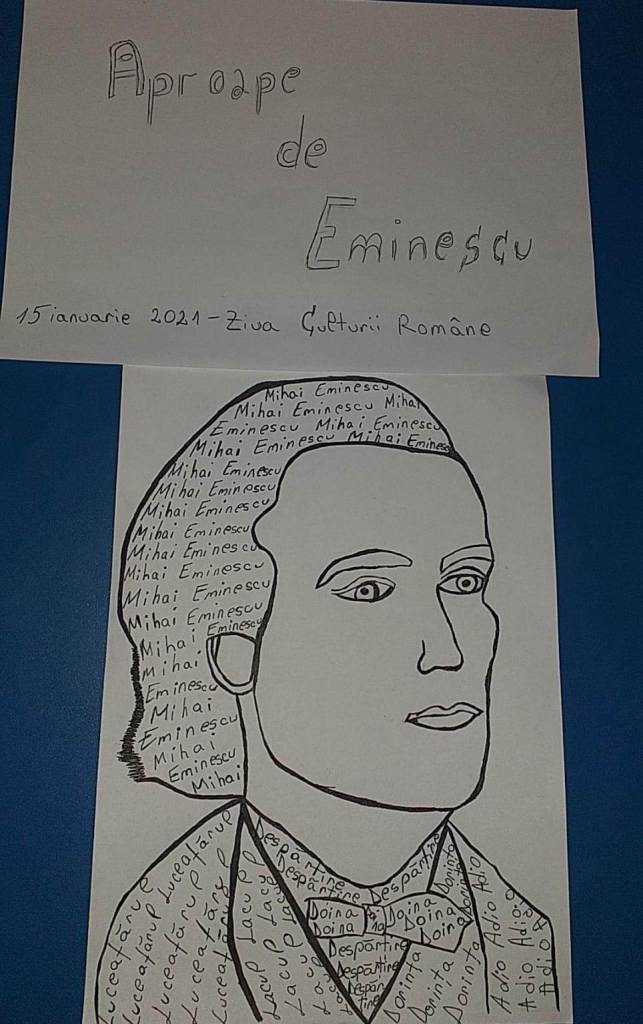 Aproape
de
Eminescu
15 ianuarie 2021 - Ziua Culturii Române
Mihai Eminescu
Mihai Eminescu Mihai
Eminescu Mihai Eminescu
Mihai Eminescu Mihai Eminescu
Mihai Eminescu
Mihai Eminescu
Mihai Eminescu
Mihai Eminescu
Mihai Eminescu
Mihai Eminescu
Mihai Eminescu
Mihai Eminescu
Mihai Eminescu
Mihai
Eminescu
Mihai
Eminescu
Mihai
Eminescu
Mihai
Luceafărul
Luceafărul
Luceafărul
Luceafărul
Luceafărul
Luceafărul
Lacul
Lacul
Lacul
Lacul
Lacul
Despărțire
Despărțire
Despărțire
Despărțire
Doina
Doina
Doina
Doina
Doina
Despărțire
Despărțire
Despărțire
Despărțire
Dorința
Dorința
Dorința
Dorința
Dorința
Adio
Adio
Adio
Adio
Adio
Adio
Adio